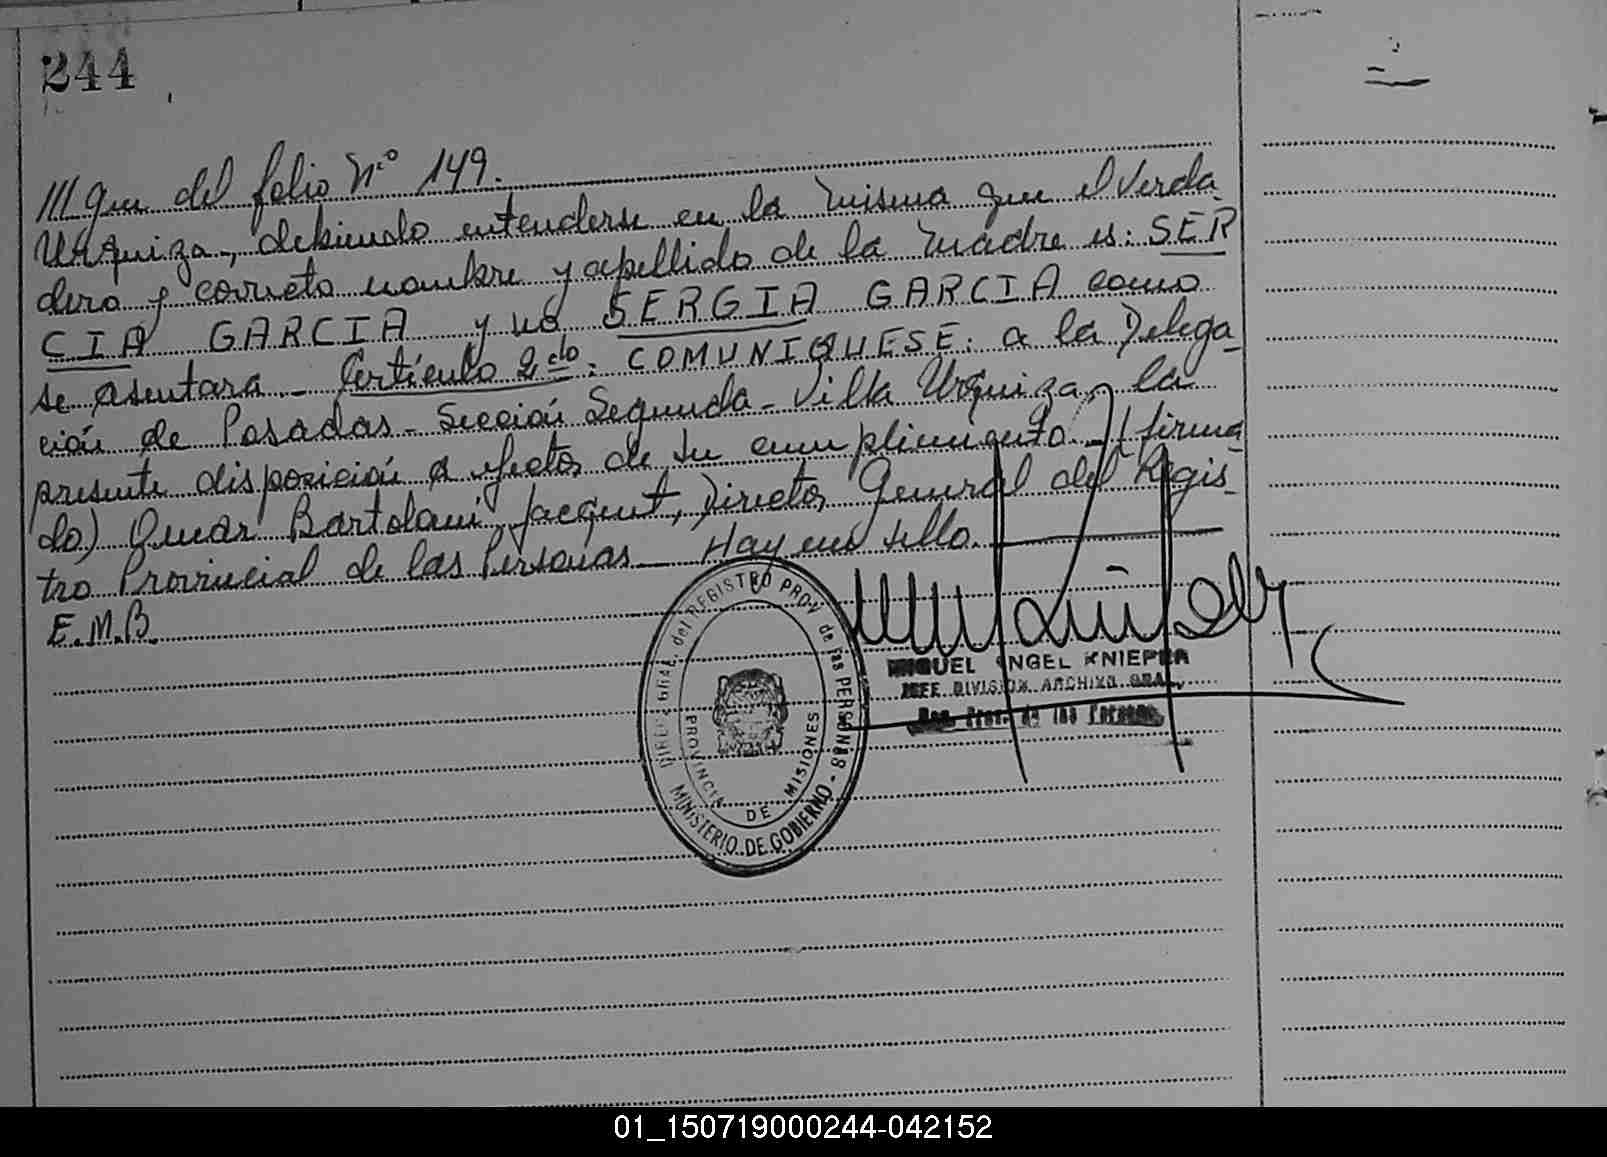 244
///gue del folio Nº 149.
Urquiza, debiendo entenderse en la misma que el verda
dero y correcto nombre y apellido de la madre es: SER
CIA GARCIA y no SERGIA GARCIA como
se asentara_ Artículo 2do: COMUNIQUESE: a la Delega_
ción de Posadas_ Sección Segunda_ Villa Urquiza, la
presente disposición a efectos de su cumplimiento_ (firma
do) Omar Bartolomé Jacquet, Director General del Regis_
tro Provincial de las Personas_ Hay un sello.
E.M.B.
del REGISTRO PROV. de las PERSONAS -
MINISTERIO DE GOBIERNO
PROVINCIA DE MISIONES
MIGUEL ANGEL
JEFE DIVISION ARCHIVO GRAL.
Reg. Prov. de las Personas
01_150719000244-042152